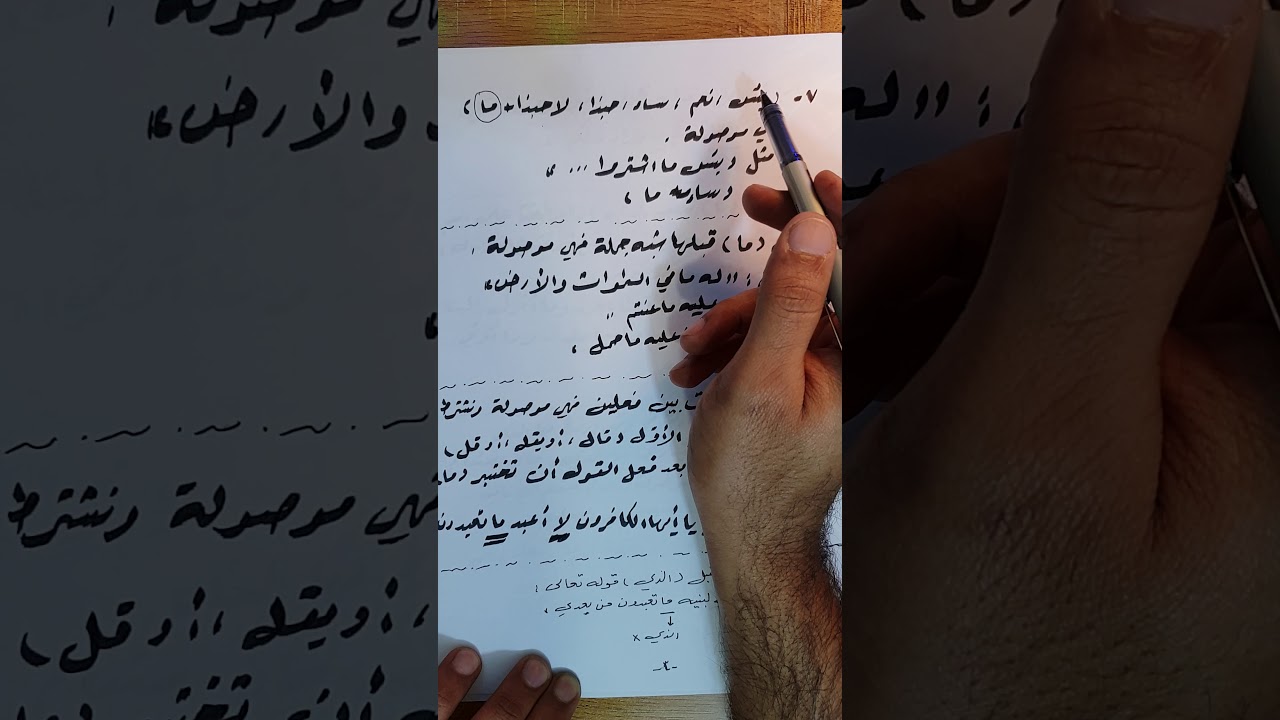 ٧- (بئس، نعم، ساء، حبذا، لا حبذا + (ما)،
موصولة .
مثل وبئس ما اشتروا ... ،
وساء ما ،
(ما) قبلها شبه جملة فهي موصولة :
: "له ما في السموات والأرض"
عليه ما عنتم "
عليه ما حمل ،
بين فعلين فهي موصولة ونشترط
الأول (قال، أو يقل، أو قل)
بعد فعل القول أن تختبر (ما
يا أيها الكافرون لا أعبد ما تعبدون
(الذي) قوله تعالى :
لبنيه ما تعبدون من بعدي ،
↓
الذي ×
-٢-